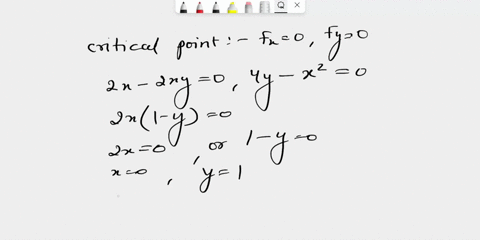 critical point :- fx=0, fy=0
2x - 2xy = 0, 4y - x² = 0
2x(1-y) = 0
2x=0, or 1-y=0
x=0, y=1